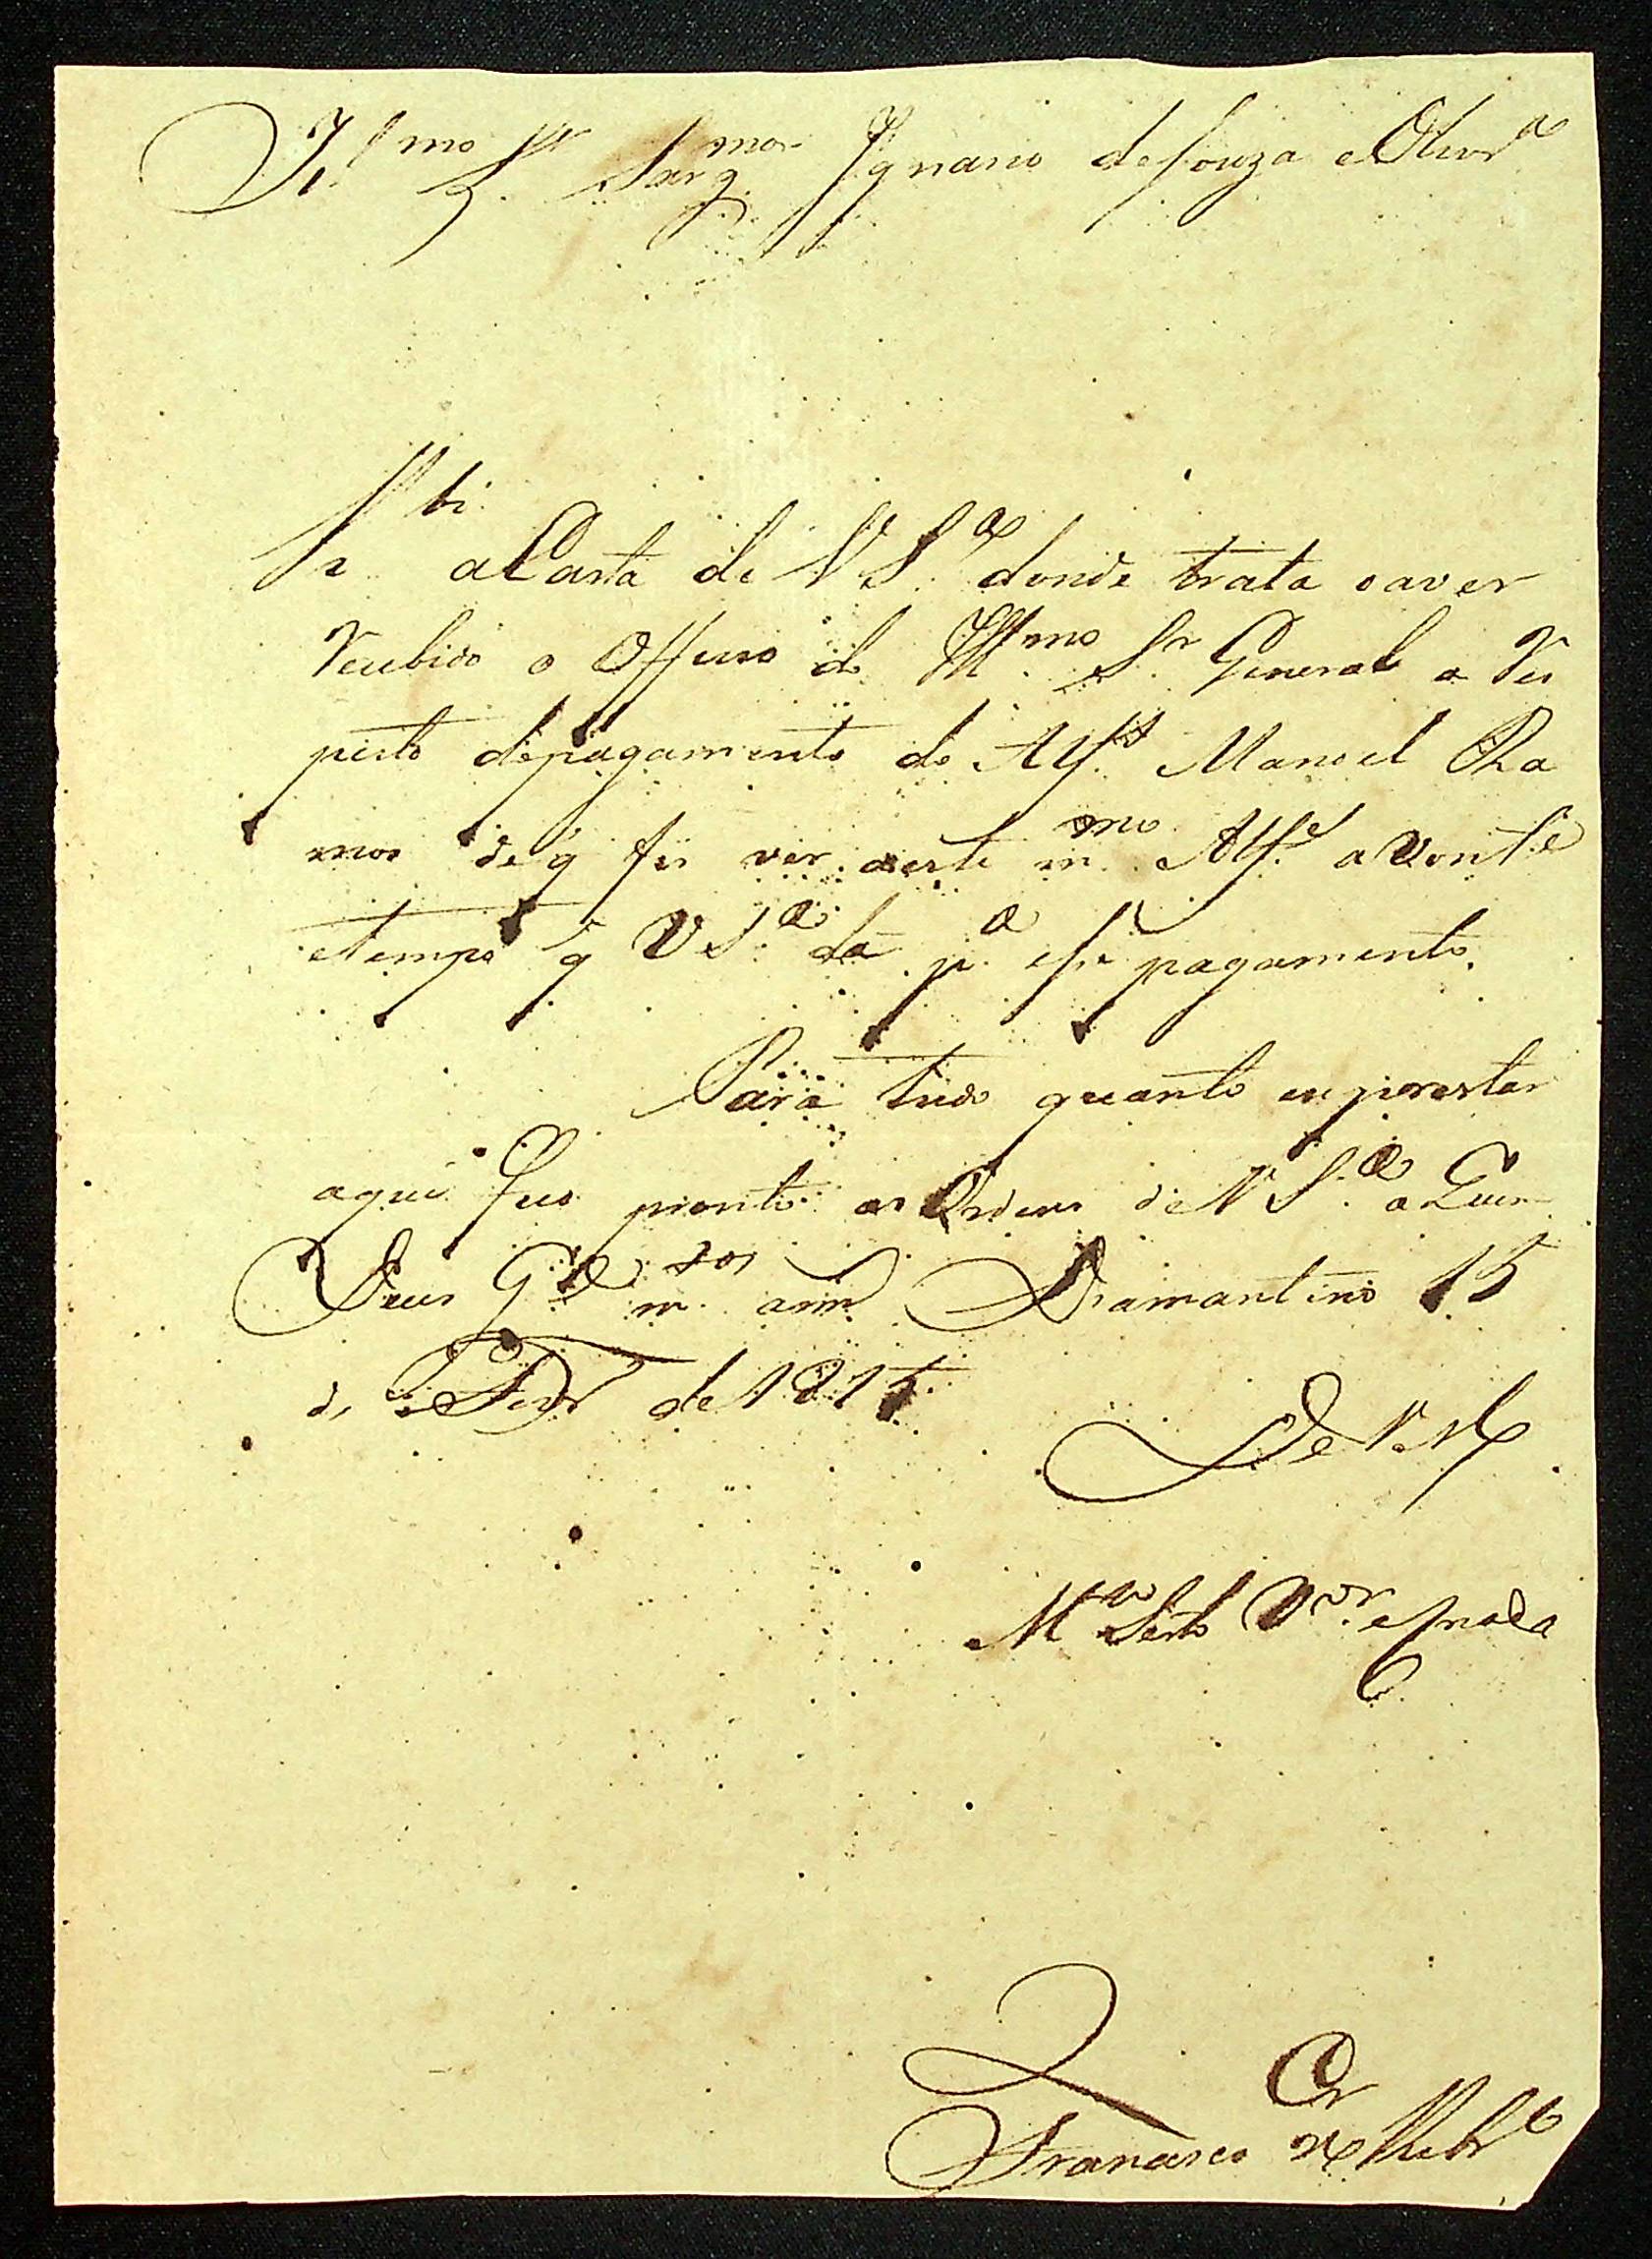 Ill.mo Sr. Sarg. mor Ignacio de Souza e Olivr.a
R.bi a Carta de V S.a donde trata o aver
recebido o Officio do Ill.mo Sr. General a res
peito do pagamento do Alf.s Manoel Ra
mos de q̃ fis ver a este m.mo Alf.s a vont.e
e tempo q̃ V S.a dá p.a esse pagamento.
Para tudo quanto eu prestar
aqui fico pronto as Ordens de V S.a a quem
Deus G.de m.tos ann.s Diamantino 15
de Fevr.o de 1815
De V M
M.to Serto V.or e Criado
Francisco